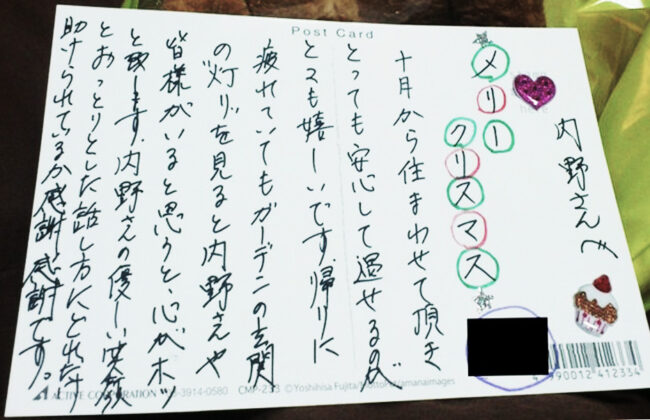 Post Card
内野さんへ
メリー
クリスマス
十月から住まわせて頂き
とっても安心して過せるのが
とても嬉しいです。帰りに
疲れていてもガーデンの玄関
の"灯り"を見ると内野さんや
皆様がいると思うと、心がホッ
と致します。内野さんの優しい笑顔
とおっとりとした話し方にどれだけ
助けられているか感謝、感謝です。
ACTIVE CORPORATION 03-3914-0580 CMP-233 ©Yoshihisa Fujita/MottoPet/amanaimages
4 990012 412354